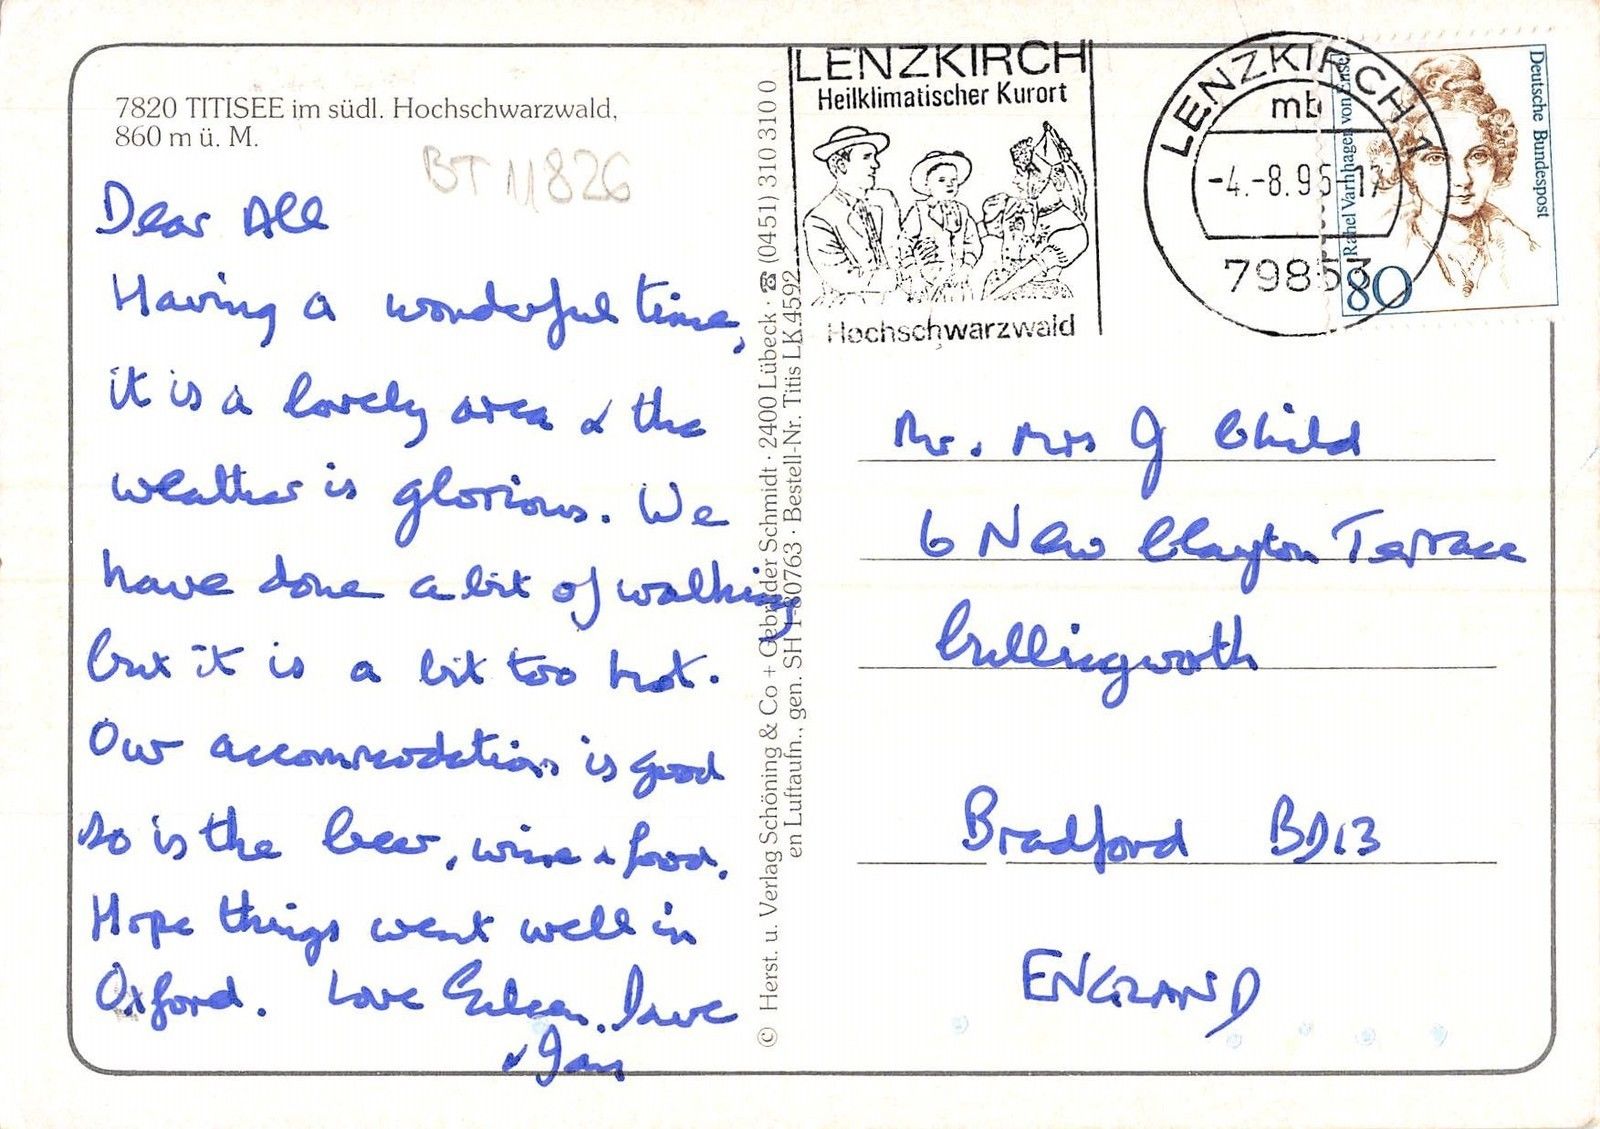 7820 TITISEE im südl. Hochschwarzwald,
860 m ü. M.
BT 11826
Dear All
Having a wonderful time,
it is a lovely area & the
weather is glorious. We
have done a bit of walking
but it is a bit too hot.
Our accommodation is good
so is the beer, wine & food.
Hope things went well in
Oxford. Love Eileen. Dave
& Ian
© Herst. u. Verlag Schöning & Co + Gebrüder Schmidt · 2400 Lübeck · ☎ (0451) 310 310 0
en Luftaufn., gen. SH 1-80763 · Bestell-Nr. Titis LK 4592
LENZKIRCH
Heilklimatischer Kurort
Hochschwarzwald
LENZKIRCH 1
mb
-4.-8.95-17
79853
Deutsche Bundespost
Rahel Varnhagen von Ense
80
Mr. Mrs J Child
6 New Clayton Terrace
Cullingworth
Bradford BD13
ENGLAND